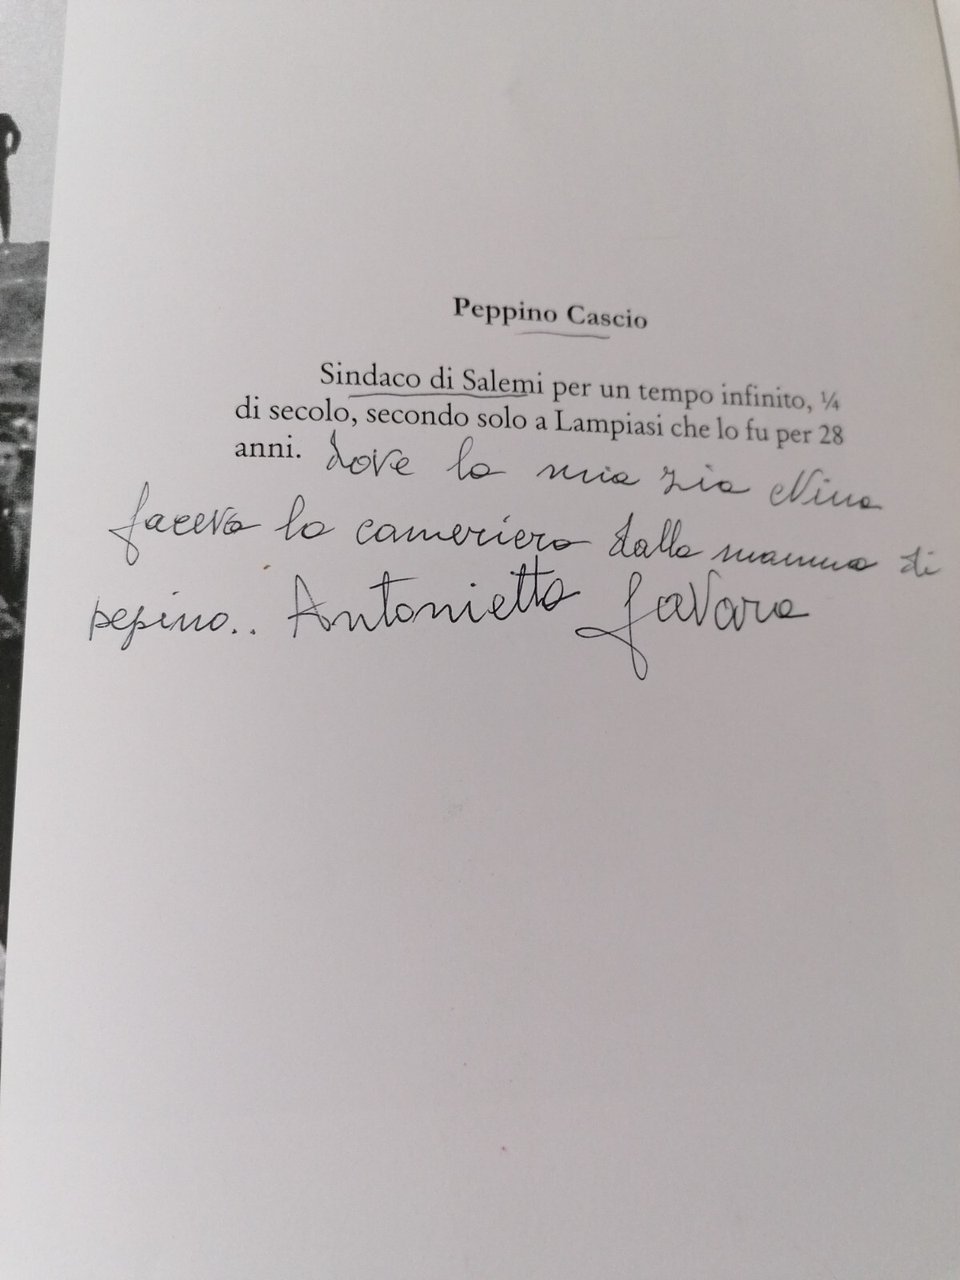 Peppino Cascio
Sindaco di Salemi per un tempo infinito, ¼
di secolo, secondo solo a Lampiasi che lo fu per 28
anni. dove la mia zia Nina
faceva la cameriera dalla mamma di
pepino.. Antonietta favara